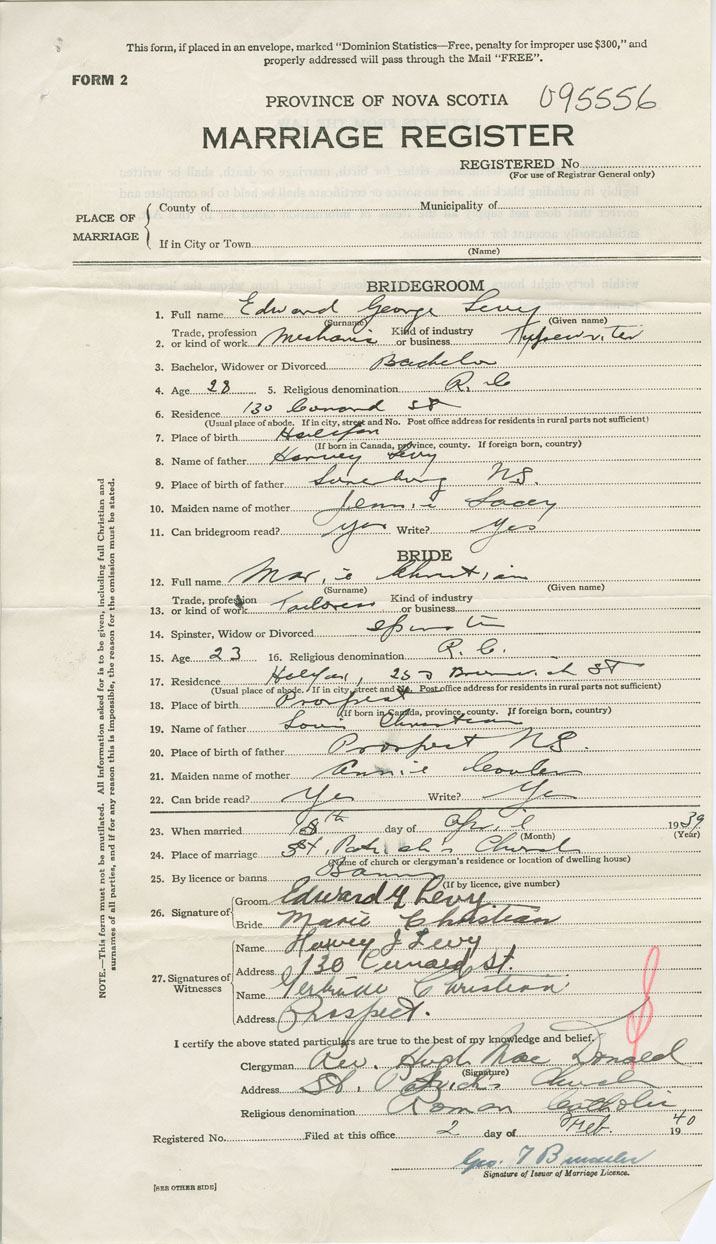 This form, if placed in an envelope, marked "Dominion Statistics—Free, penalty for improper use $300," and
properly addressed will pass through the Mail "FREE".
FORM 2
PROVINCE OF NOVA SCOTIA 095556
MARRIAGE REGISTER
REGISTERED No.
(For use of Registrar General only)
PLACE OF MARRIAGE
County of Municipality of
If in City or Town
(Name)
BRIDEGROOM
1. Full name Edward George Levy
(Surname) (Given name)
Trade, profession Kind of industry
2. or kind of work Mechanic or business Typewriter
3. Bachelor, Widower or Divorced Bachelor
4. Age 28 5. Religious denomination R. C
6. Residence 130 St
(Usual place of abode. If in city, street and No. Post office address for residents in rural parts not sufficient)
7. Place of birth Halifax
(If born in Canada, province, county. If foreign born, country)
8. Name of father Harvey Levy
9. Place of birth of father Lunenburg NS.
10. Maiden name of mother Jennie Lacey
11. Can bridegroom read? Yes Write? Yes
BRIDE
12. Full name Marie Christian
(Surname) (Given name)
Trade, profession Kind of industry
13. or kind of work Tailoress or business
14. Spinster, Widow or Divorced Spinster
15. Age 23 16. Religious denomination R. C.
17. Residence Halifax, Brunswick St
(Usual place of abode. If in city, street and No. Post office address for residents in rural parts not sufficient)
18. Place of birth Prospect
(If born in Canada, province, county. If foreign born, country)
19. Name of father Louis Christian
20. Place of birth of father Prospect NS.
21. Maiden name of mother Annie
22. Can bride read? Yes Write? Yes
23. When married 18th day of April 1939
(Month) (Year)
24. Place of marriage St. Patrick's Church
(Name of church or clergyman's residence or location of dwelling house)
25. By licence or banns Banns
(If by licence, give number)
26. Signature of
Groom Edward G Levy
Bride Marie Christian
27. Signatures of Witnesses
Name Harvey J Levy
Address 130 Cunard St.
Name Gertrude Christian
Address Prospect.
I certify the above stated particulars are true to the best of my knowledge and belief.
Clergyman Rev. Hugh Mac Donald
(Signature)
Address St. Patrick's Church
Religious denomination Roman Catholic
Registered No. Filed at this office 2 day of Feb. 1940
Geo.
Signature of Issuer of Marriage Licence.
[SEE OTHER SIDE]
NOTE.—This form must not be mutilated. All information asked for is to be given, including full Christian and
surnames of all parties, and if for any reason this is impossible, the reason for the omission must be stated.